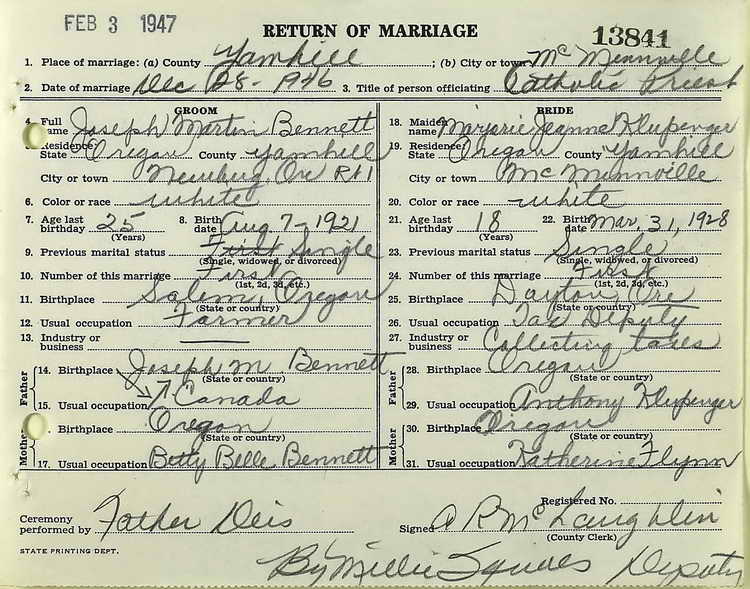 FEB 3 1947
RETURN OF MARRIAGE
13841
1. Place of marriage: (a) County Yamhill ; (b) City or town McMinnville
2. Date of marriage Dec 28-1946 3. Title of person officiating Catholic Priest
GROOM
4. Full name Joseph Martin Bennett
Residence State Oregon County Yamhill
City or town Newberg, Ore Rt 1
6. Color or race white
7. Age last birthday 25 (Years) 8. Birth date Aug 7-1921
9. Previous marital status First Single
(Single, widowed, or divorced)
10. Number of this marriage First
(1st, 2d, 3d, etc.)
11. Birthplace Salem, Oregon
(State or country)
12. Usual occupation Farmer
13. Industry or business
Father
14. Birthplace Joseph M Bennett
(State or country)
15. Usual occupation Canada
Mother
. Birthplace Oregon
(State or country)
17. Usual occupation Betty Belle Bennett
BRIDE
18. Maiden name Marjorie Jeanne Klupenger
19. Residence State Oregon County Yamhill
City or town McMinnville
20. Color or race white
21. Age last birthday 18 (Years) 22. Birth date Mar. 31, 1928
23. Previous marital status Single
(Single, widowed, or divorced)
24. Number of this marriage First
(1st, 2d, 3d, etc.)
25. Birthplace Dayton, Ore
(State or country)
26. Usual occupation Tax Deputy
27. Industry or business Collecting taxes
Father
28. Birthplace Oregon
(State or country)
29. Usual occupation Anthony Klupenger
Mother
30. Birthplace Oregon
(State or country)
31. Usual occupation Katherine Flynn
Registered No.
Ceremony performed by Father Deis
Signed A R McLaughlin
(County Clerk)
STATE PRINTING DEPT.
By Millie Squires Deputy